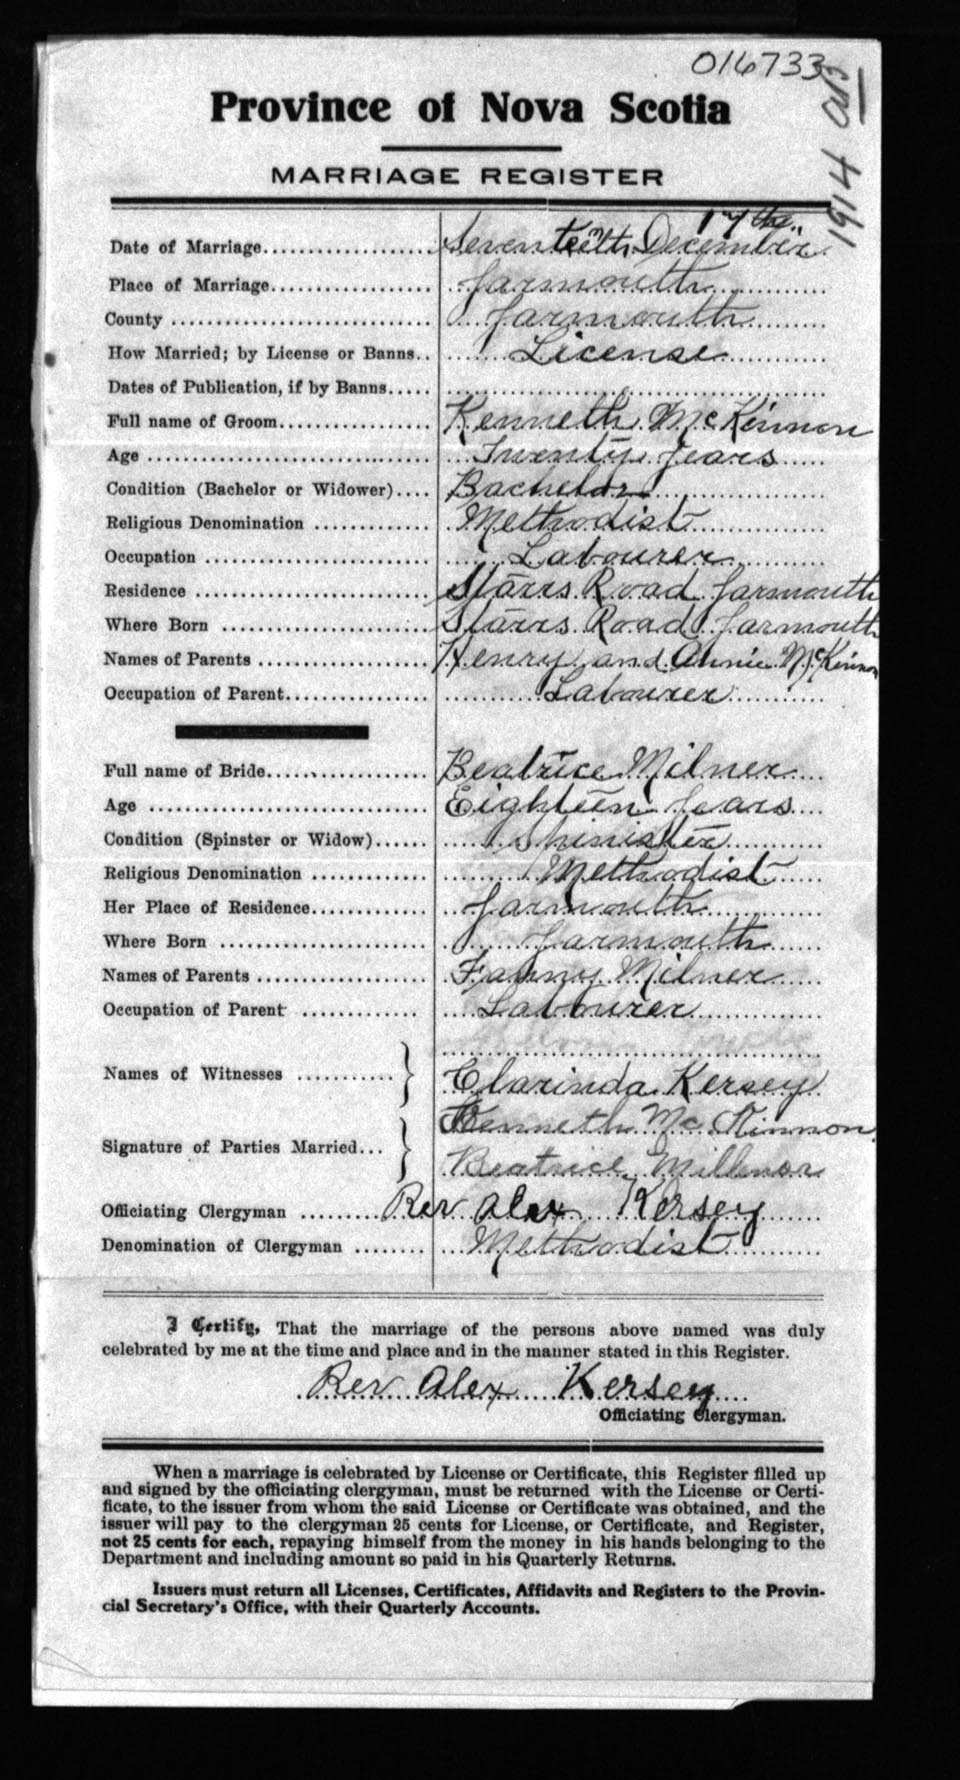 016733
1914
Province of Nova Scotia
MARRIAGE REGISTER
17 the
Date of Marriage.................... Seventeenth December
Place of Marriage................... Yarmouth
County ............................. Yarmouth
How Married; by License or Banns.. License
Dates of Publication, if by Banns.....
Full name of Groom.................. Kenneth McKinnon
Age ................................ Twenty Years
Condition (Bachelor or Widower).... Bachelor
Religious Denomination ............. Methodist
Occupation ......................... Labourer
Residence .......................... Starrs Road Yarmouth
Where Born ......................... Starrs Road Yarmouth
Names of Parents ................... Henry and Annie McKinnon
Occupation of Parent................ Labourer
Full name of Bride.................. Beatrice Milner
Age ................................ Eighteen Years
Condition (Spinster or Widow)...... Spinister
Religious Denomination ............. Methodist
Her Place of Residence.............. Yarmouth
Where Born ......................... Yarmouth
Names of Parents ................... Fanny Milner
Occupation of Parent ............... Labourer
Names of Witnesses ........... } Clarinda Kersey
Kenneth McKinnon
Signature of Parties Married... }
Beatrice Millnor
Officiating Clergyman .......... Rev Alex Kersey
Denomination of Clergyman ........ Methodist
I Certify, That the marriage of the persons above named was duly
celebrated by me at the time and place and in the manner stated in this Register.
Rev Alex Kersey
Officiating Clergyman.
When a marriage is celebrated by License or Certificate, this Register filled up
and signed by the officiating clergyman, must be returned with the License or Certi-
ficate, to the issuer from whom the said License or Certificate was obtained, and the
issuer will pay to the clergyman 25 cents for License, or Certificate, and Register,
not 25 cents for each, repaying himself from the money in his hands belonging to the
Department and including amount so paid in his Quarterly Returns.
Issuers must return all Licenses, Certificates, Affidavits and Registers to the Provin-
cial Secretary's Office, with their Quarterly Accounts.